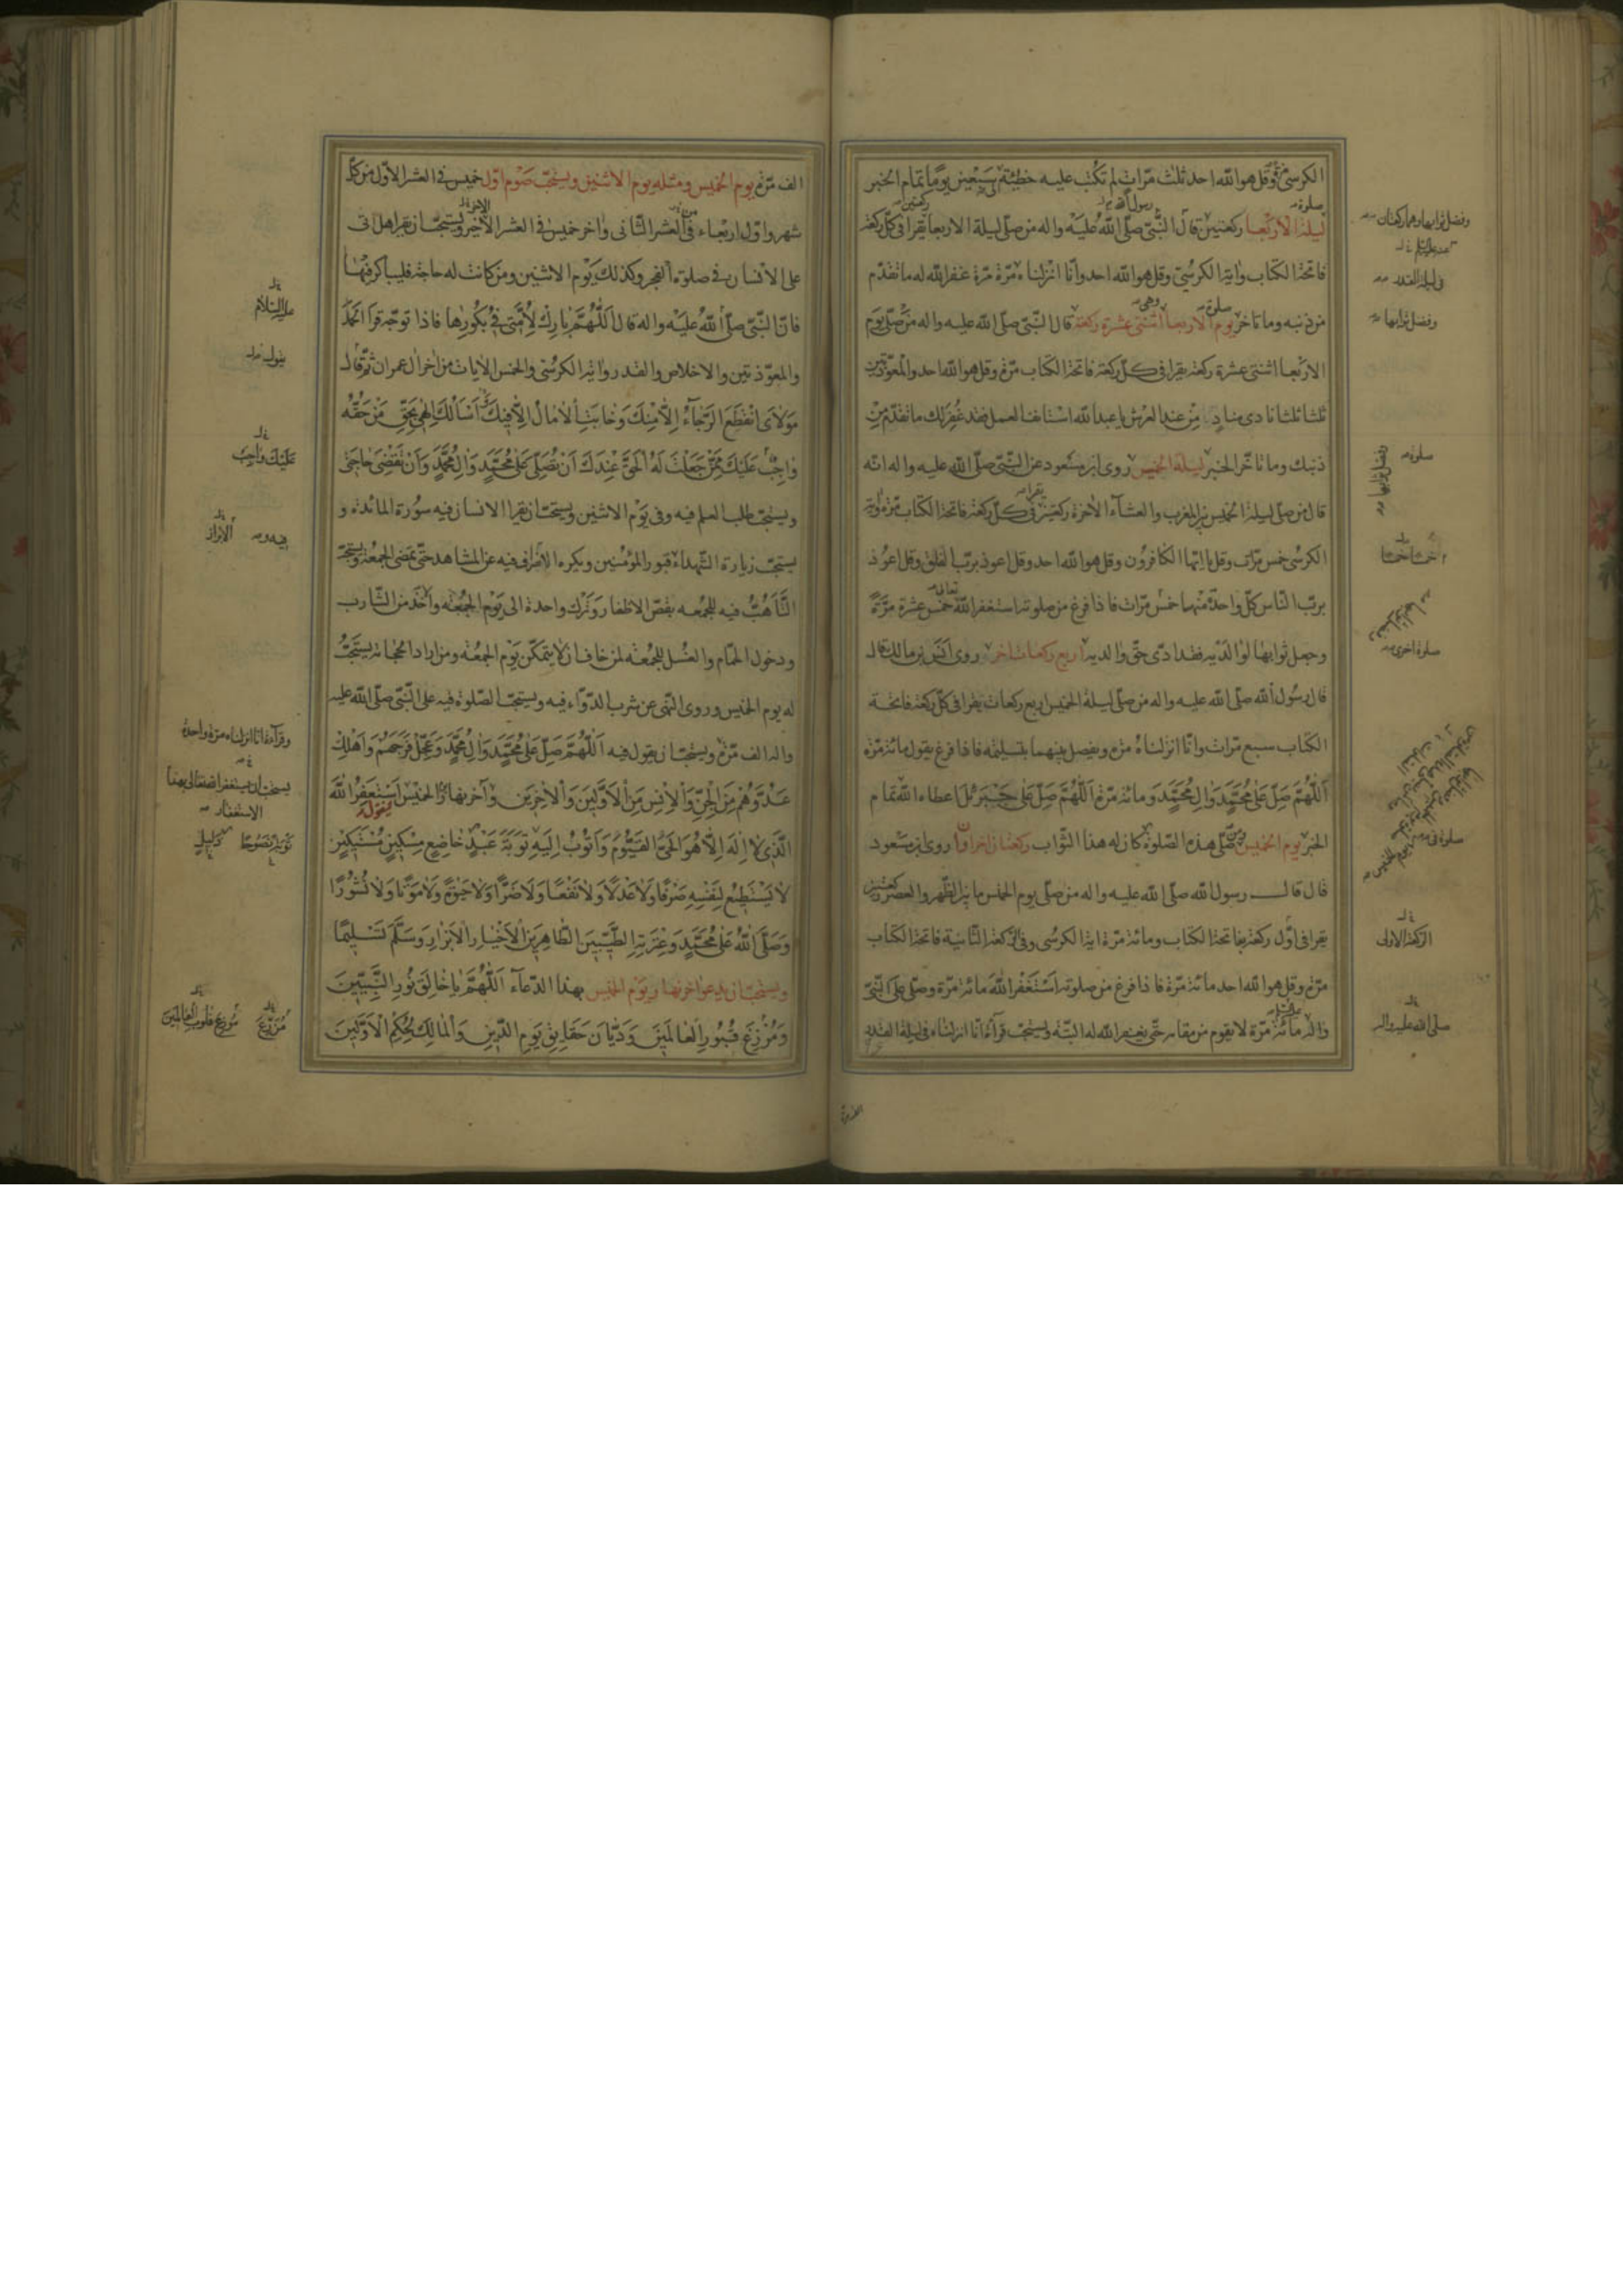 الكرسىّ وقل هو الله احد ثلث مرّات لم تكتب عليه خطيئة سبعين يوما تمام الخبر
ليلة الاربعا ركعتين قال النّبىّ صلّى الله عليه واله من صلّى ليلة الاربعا يقرا فى كلّ ركعة
فاتحة الكتاب واية الكرسىّ وقل هو الله احد وانّا انزلناه مرّة مرّة غفر الله له ما تقدّم
من ذنبه وما تاخّر يوم الاربعا اثنتى عشرة ركعة قال النّبىّ صلّى الله عليه واله من صلّى يوم
الاربعا اثنتى عشرة ركعة يقرا فى كلّ ركعة فاتحة الكتاب مرّة وقل هو الله احد والمعوّذتين
ثلثا ثلثا نادى مناد من عند العرش يا عبد الله استانف العمل فقد غفر لك ما تقدّم من
ذنبك وما تاخّر الخبر ليلة الخميس روى ابن مسعود عن النّبىّ صلّى الله عليه واله انّه
قال من صلّى ليلة الخميس بين المغرب والعشآء الاخرة ركعتين يقرا فى كلّ ركعة فاتحة الكتاب مرّة واية
الكرسى خمس مرّات وقل يا ايّها الكافرون وقل هو الله احد وقل اعوذ بربّ الفلق وقل اعوذ
بربّ النّاس كلّ واحدة منها خمس مرّات فاذا فرغ من صلوته استغفر الله تعالى خمس عشرة مرّة
وجعل ثوابها لوالديه فقد ادّى حقّ والديه اربع ركعات اخر روى انس بن مالك قال
قال رسول الله صلّى الله عليه واله من صلّى ليلة الخميس اربع ركعات يقرا فى كلّ ركعة فاتحة
الكتاب سبع مرّات وانّا انزلناه مرّة ويفصل بينهما بتسليمة فاذا فرغ يقول مائة مرّة
اللّهمّ صلّ على محمّد وال محمّد ومائة مرّة اللّهمّ صلّ على جبرئل اعطاه الله تمام
الخبر يوم الخميس من صلّى هذه الصّلوة كان له هذا الثّواب ركعتان اخراوان روى ابن مسعود
قال قال رسول الله صلّى الله عليه واله من صلّى يوم الخميس ما بين الظّهر والعصر ركعتين
يقرا فى اوّل ركعة بفاتحة الكتاب ومائة مرّة اية الكرسى وفى الركعة الثّانية فاتحة الكتاب
مرّة وقل هو الله احد مائة مرّة فاذا فرغ من صلوته استغفر الله مائة مرّة وصلّى على النّبىّ
واله مائة مرّة لا يقوم من مقامه حتّى يغفر الله له البتّة ويستحبّ قرآءة انّا انزلناه فى ليلة القدر
وفضل ثوابها وهما ركعتان
فى ليلة القدر
وفضل ثوابها
صلوة
خمسا خمسا
صلوة اخرى
صلوة فى
الركعة الاولى
صلى الله عليه واله
الف مرّة يوم الخميس ومثله يوم الاثنين ويستحبّ صوم اوّل خميس فى العشر الاوّل من كلّ
شهر واوّل اربعاء فى العشر الثّانى واخر خميس فى العشر الاخير ويستحبّ ان يقرا هل اتى
على الانسان فى صلوة الفجر وكذلك يوم الاثنين ومن كانت له حاجة فليباكر فيها
فانّ النّبىّ صلّى الله عليه واله قال اللّهمّ بارك لامّتى فى بكورها فاذا توجّه قرا الحمد
والمعوّذتين والاخلاص والقدر واية الكرسّى والخمس الايات من اخر ال عمران ثمّ قال
مولاى انقطع الرّجآء الاّ منك وخابت الامال الاّ فيك اسالك الهى بحقّ من حقّه
واجب عليك ممّن جعلت له الحقّ عندك ان تصلّى على محمّد وال محمّد وان تقضى حاجتى
ويستحبّ طلب العلم فيه وفى يوم الاثنين ويستحبّ ان يقرا الانسان فيه سورة المائدة و
يستحبّ زيارة الشّهداء وقبور المؤمنين ويكره الانصراف فيه عن المشاهد حتّى تمضى الجمعة ويستحبّ
التّاهّب فيه للجمعه بقصّ الاظفار وترك واحدة الى يوم الجمعة والاخذ من الشّارب
ودخول الحمّام والغسل للجمعة لمن خاف ان لا يتمكّن يوم الجمعة ومن اراد الحجامة يستحبّ
له يوم الخميس وروى النّهى عن شرب الدّوآء فيه ويستحبّ الصّلوة فيه على النّبىّ صلّى الله عليه
واله الف مرّة ويستحبّ ان يقول فيه اللّهمّ صلّ على محمّد وال محمّد وعجّل فرجهم واهلك
عدوّهم من الجنّ والانس من الاوّلين والاخرين واخر نهار الخميس استغفر الله
الّذى لا اله الاّ هو الحىّ القيّوم واتوب اليه توبة عبد خاضع مسكين مستكين
لا يستطيع لنفسه صرفا ولا عدلا ولا نفعا ولا ضرّا ولا حيوة ولا موتا ولا نشورا
وصلّى الله على محمّد وعترته الطّيّبين الطّاهرين الاخيار الابرار وسلّم تسليما
ويستحبّ ان يدعو اخر نهار يوم الخميس بهذا الدّعآء اللّهمّ يا خالق نور النّبيّين
ومزرع قبور العالمين وديّان حقايق يوم الدّين والمالك لحكم الاوّلين
عليه السّلام
يقول
عليك واجب
فيه الابرار
وقرآءة انا انزلناه مرة واحدة
يستحب ان يستغفر الله تعالى بهذا
الاستغفار
توبة نصوحا ذليل
مزرع موزع قلوب العالمين